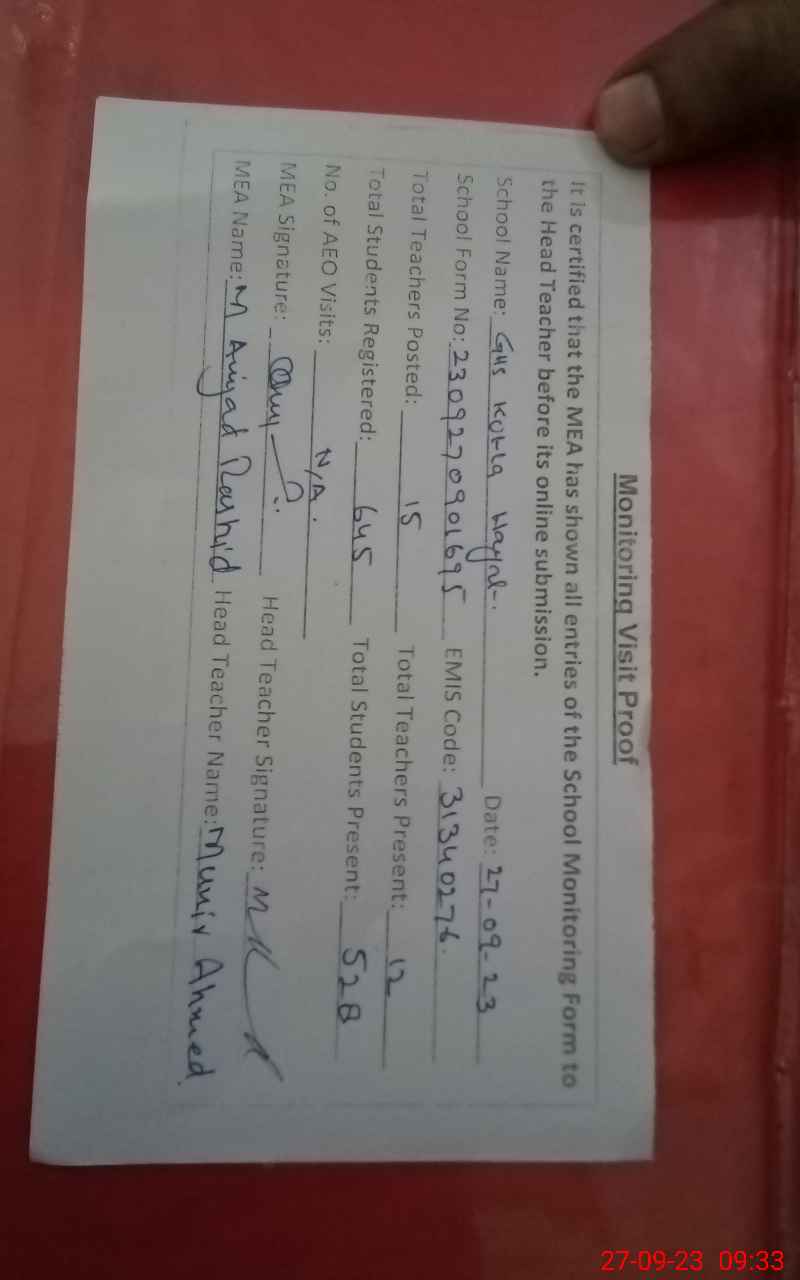 Monitoring Visit Proof
It is certified that the MEA has shown all entries of the School Monitoring Form to
the Head Teacher before its online submission.
School Name: GHS Kotla Hayat Date: 27-09-23
School Form No: 230927090169 5 EMIS Code: 31340276.
Total Teachers Posted: 15 Total Teachers Present: 12
Total Students Registered: 645 Total Students Present: 528
No. of AEO Visits: N/A.
MEA Signature: Head Teacher Signature:
MEA Name: M Amjad Rashid Head Teacher Name: Munir Ahmed
27-09-23 09:33